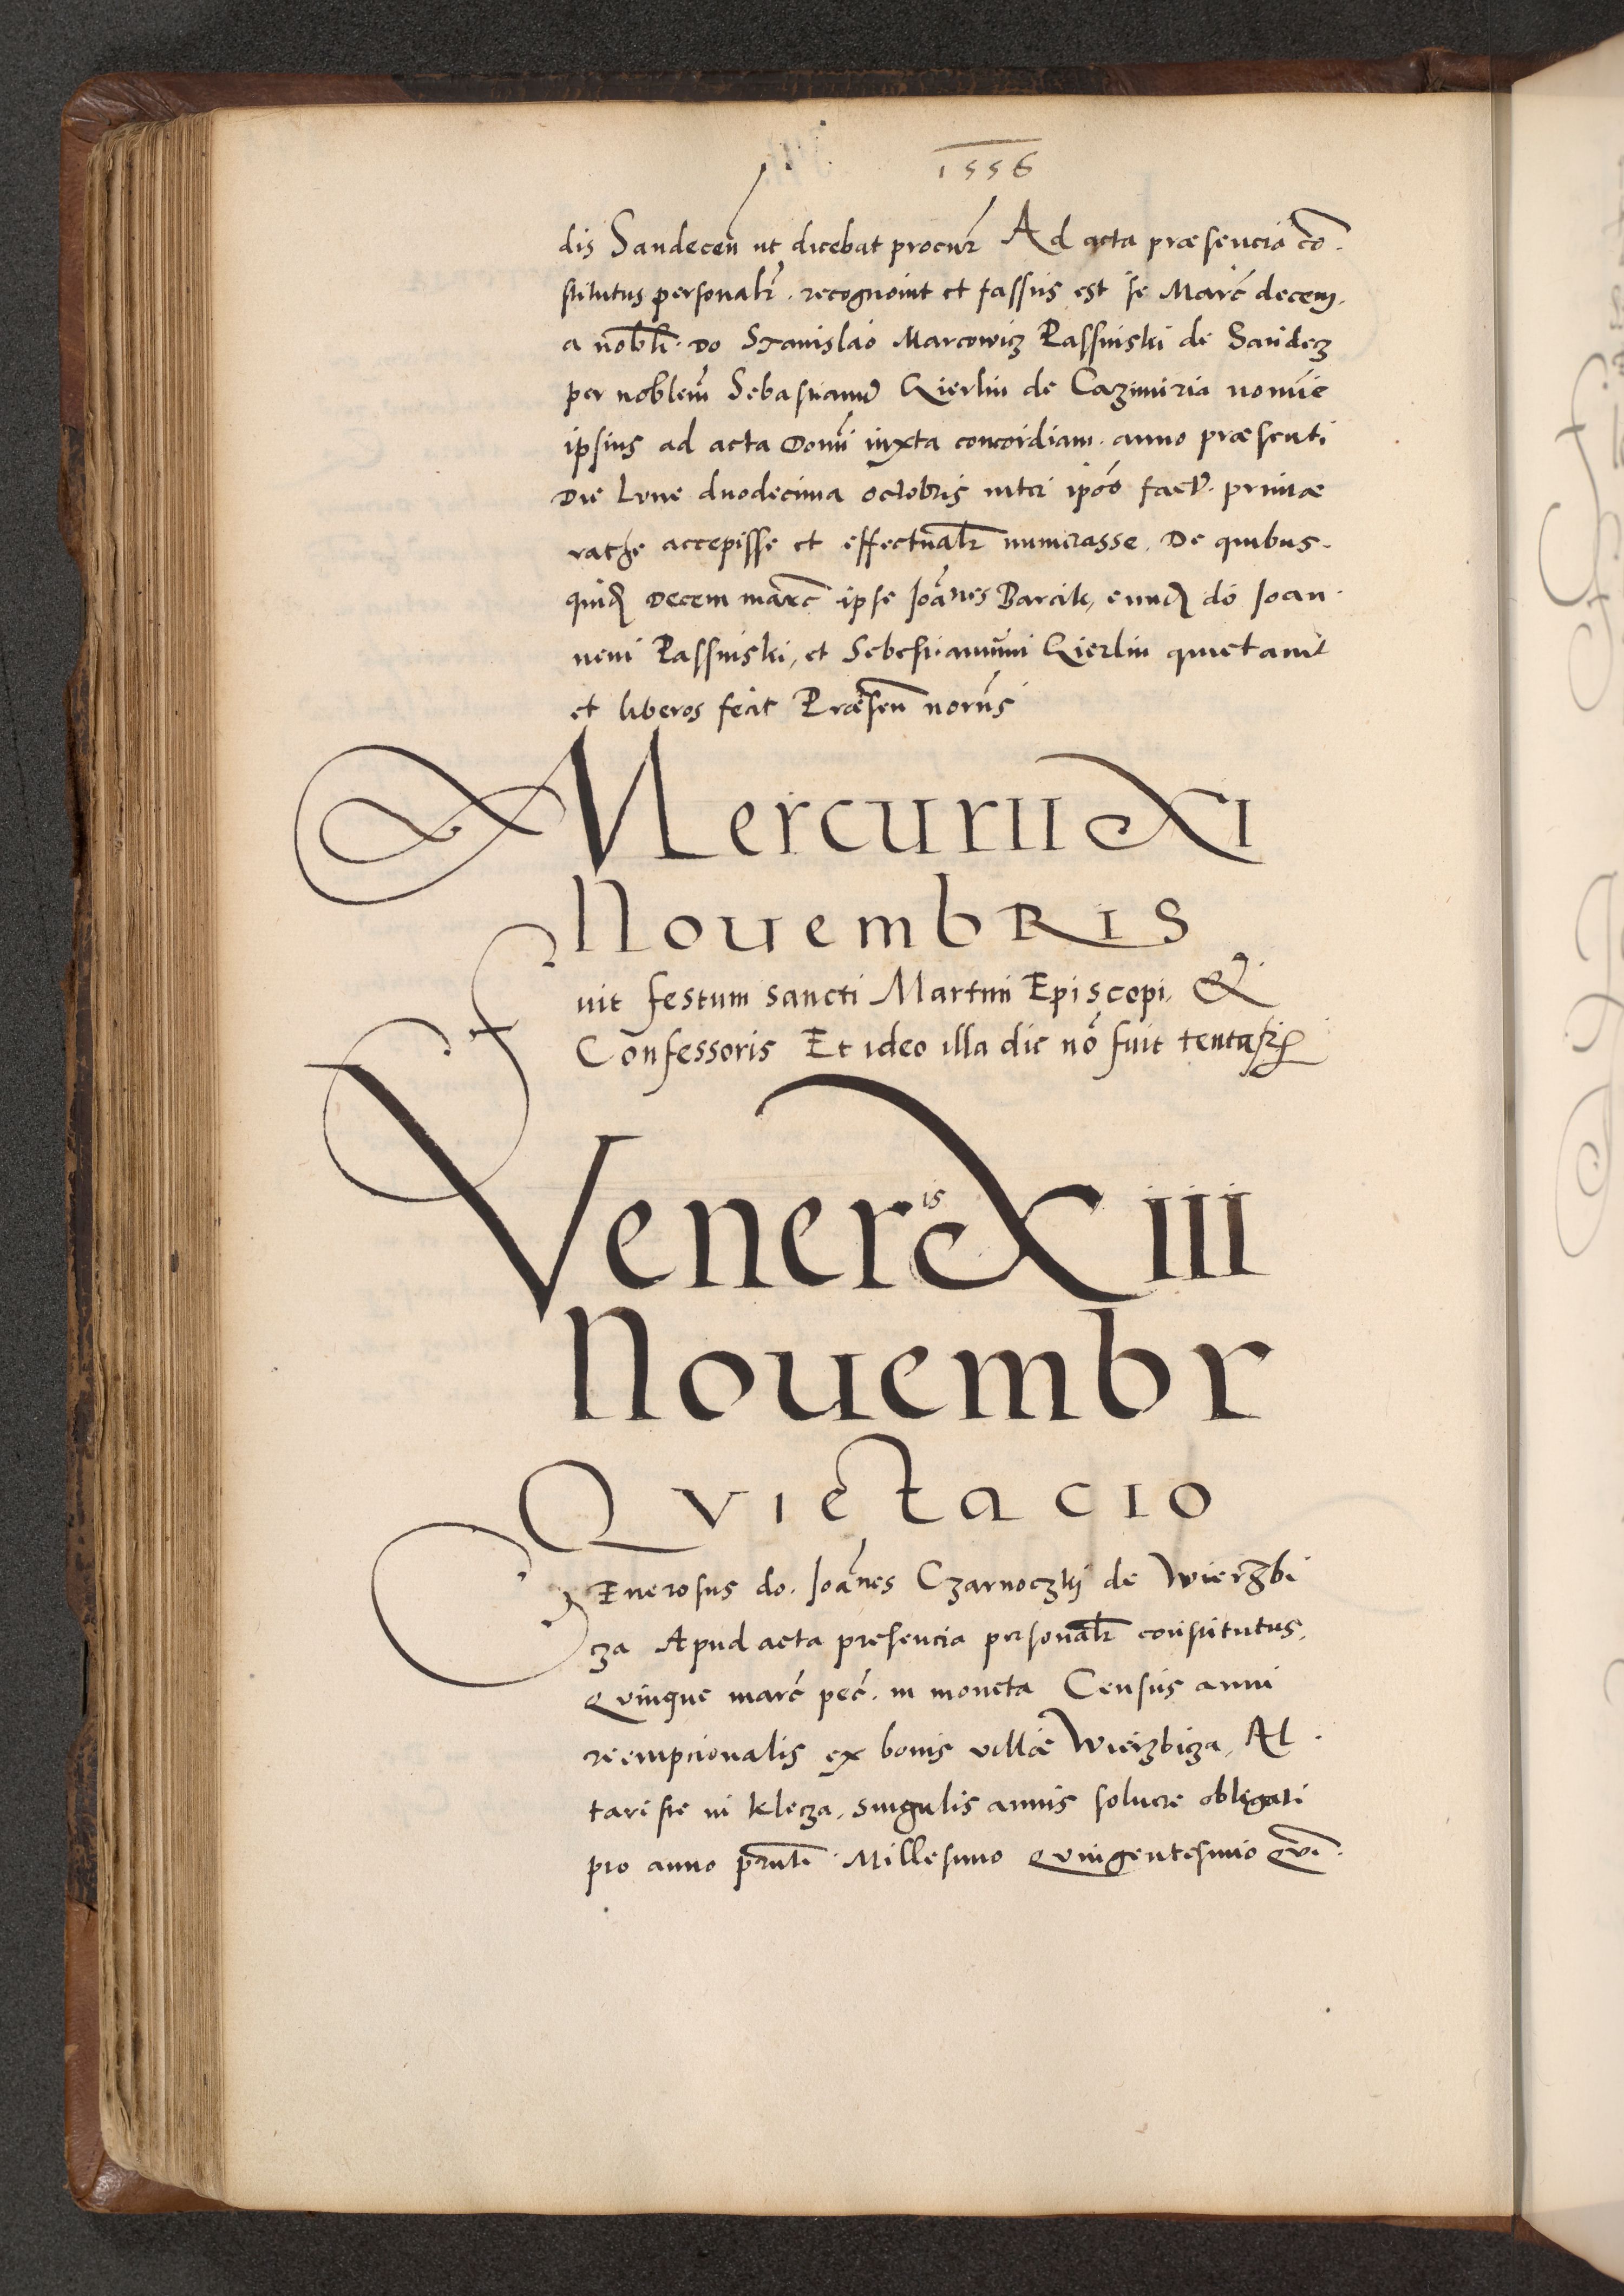 1556
dis Sandeceñ ut dicebat procur̃ Ad acta præsencia cõ
stitutus personalr̃. recognovit et fassus est se Marc̃ decem.
a nobili. Do Stanislao Marcowicz Rassinski de Sandecz
per noblem̃ Sebastianũ Gierlin de Cazimiria nomĩe
ipsius ad acta Domĩ iuxta concordiam. anno præsenti
Die Lune duodecima octobris inter ipõs factã. primæ
rathe accepisse et effectualr̃ numerasse. De quibus.
quidẽ Decem marc̃ ipse Joãnes Barcik, eundẽ dõ Joan
nem Rassinski, et Sebestianum Gierlin quietavit
et liberos fecit Præseñ norũs
Mercurii XI
NouembRIS
Fuit festum sancti Martini Episcopi, &
Confessoris Et ideo illa die nõ fuit tentã
Veneris XIII
Nouembr
Qvietacio
GEnerosus do. Joãnes Czarnoczkij de Wierzbi
cza Apud acta presencia personalr̃ constitutus,
Quinque marc̃ pec̃. in moneta Census anni
reempcionalis ex bonis villæ Wierzbicza, Al
tariste in Klecza, singulis annis soluere obligati
pro anno prñti Millesimo Quingentesimo Qui